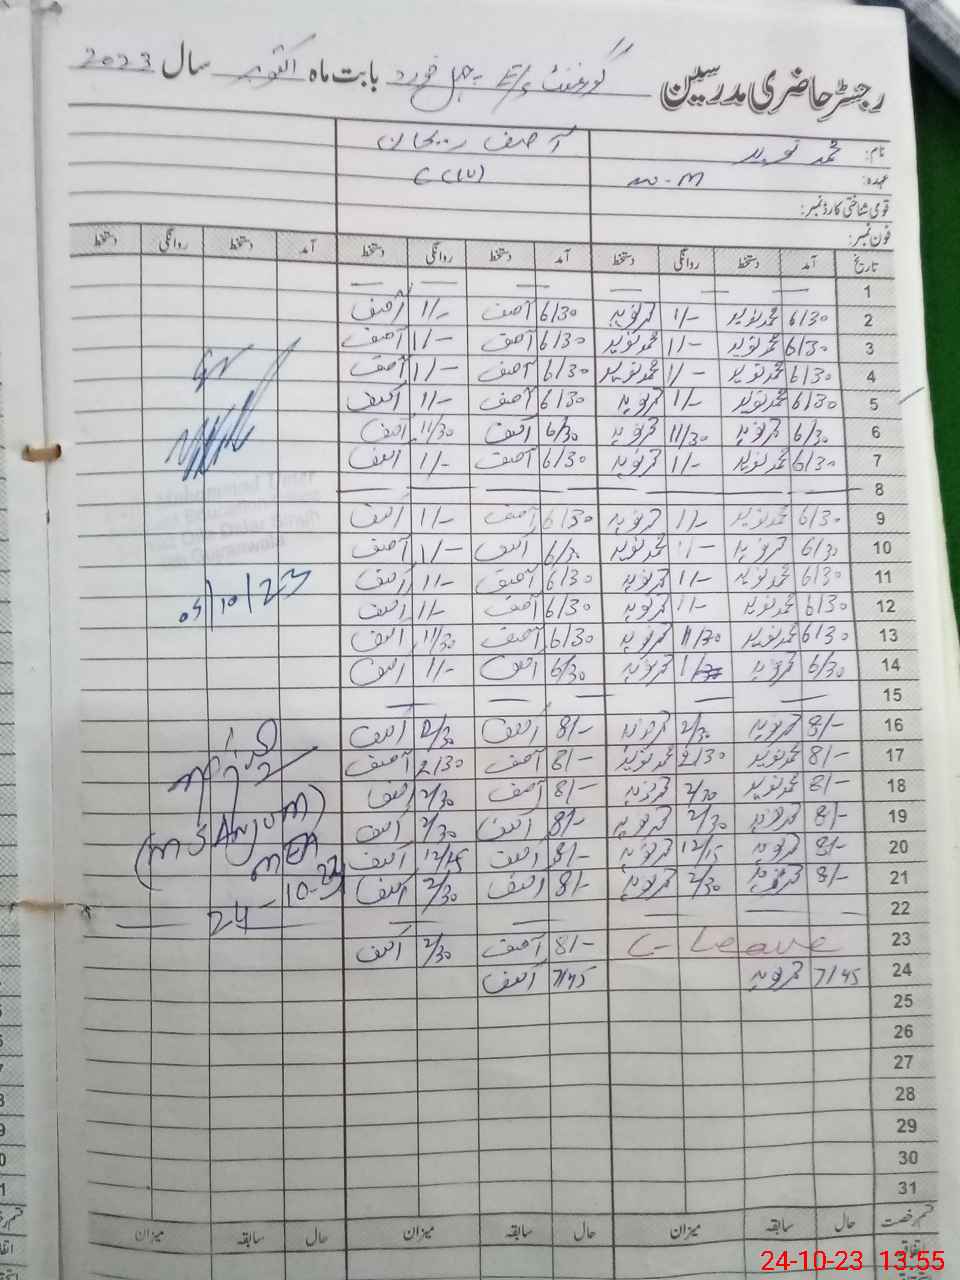 رجسٹر حاضری مدرسین گورنمنٹ E/S بابت ماہ اکتوبر سال 2023
نام: محمد نوید آصف ریحان
عہدہ: C (IV)
قومی شناختی کارڈ نمبر:
فون نمبر:
تاریخ آمد دستخط روانگی دستخط آمد دستخط روانگی دستخط آمد دستخط روانگی دستخط
1 — — — — — —
2 6/30 محمد نوید 1/- محمد نوید 6/30 آصف 1/- آصف
3 6/30 محمد نوید 1/- محمد نوید 6/30 آصف 1/- آصف
4 6/30 محمد نوید 1/- محمد نوید 6/30 آصف 1/- آصف
5 6/30 محمد نوید 1/- محمد نوید 6/30 آصف 1/- آصف
6 6/30 محمد نوید 11/30 محمد نوید 6/30 آصف 11/30 آصف
7 6/30 محمد نوید 1/- محمد نوید 6/30 آصف 1/- آصف
8 — — — — — —
9 6/30 محمد نوید 1/- محمد نوید 6/30 آصف 1/- آصف
10 6/30 محمد نوید 1/- محمد نوید 6/30 آصف 1/- آصف
11 6/30 محمد نوید 1/- محمد نوید 6/30 آصف 1/- آصف
12 6/30 محمد نوید 1/- محمد نوید 6/30 آصف 1/- آصف
13 6/30 محمد نوید 11/30 محمد نوید 6/30 آصف 11/30 آصف
14 6/30 محمد نوید 1/- محمد نوید 6/30 آصف 1/- آصف
15 — — — — — —
16 8/- محمد نوید 2/30 محمد نوید 8/- آصف 2/30 آصف
17 8/- محمد نوید 2/30 محمد نوید 8/- آصف 2/30 آصف
18 8/- محمد نوید 2/30 محمد نوید 8/- آصف 2/30 آصف
19 8/- محمد نوید 2/30 محمد نوید 8/- آصف 2/30 آصف
20 8/- محمد نوید 12/15 محمد نوید 8/- آصف 12/15 آصف
21 8/- محمد نوید 2/30 محمد نوید 8/- آصف 2/30 آصف
22 — — — — — —
23 C- Leave 8/- آصف 2/30 آصف
24 7/45 محمد نوید 7/45 آصف
25
26
27
28
29
30
31
05/10/23
(M S ANJUM)
MEA
24-10-23
قسم رخصت حال سابقہ میزان حال سابقہ میزان حال سابقہ میزان
اتفاقیہ
24-10-23 13:55